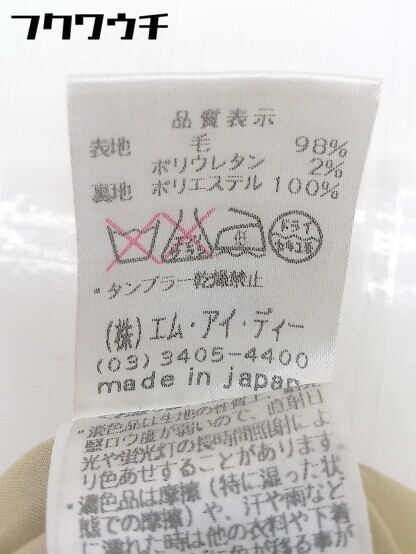 フクワウチ
品質表示
表地 毛 98%
ポリウレタン 2%
裏地 ポリエステル 100%
ドライ
セキユ系
*タンブラー乾燥禁止
(株)エム・アイ・ディー
(03)3405-4400
made in japan
*濃色品は生地の性質上、直射日
堅ロウ度が弱いので、
光や蛍光灯の長時間照射によ
り色あせすることがあります。
*濃色品は摩擦(特に湿った状
態での摩擦)や、汗や雨など
に濡れた時は他の衣料や下着